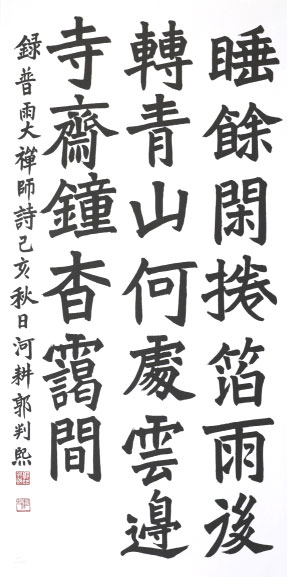 睡餘閑捲箔雨後
轉青山何處雲邊
寺齋鐘杳靄間
録普雨大禪師詩己亥秋日河耕郭判熙